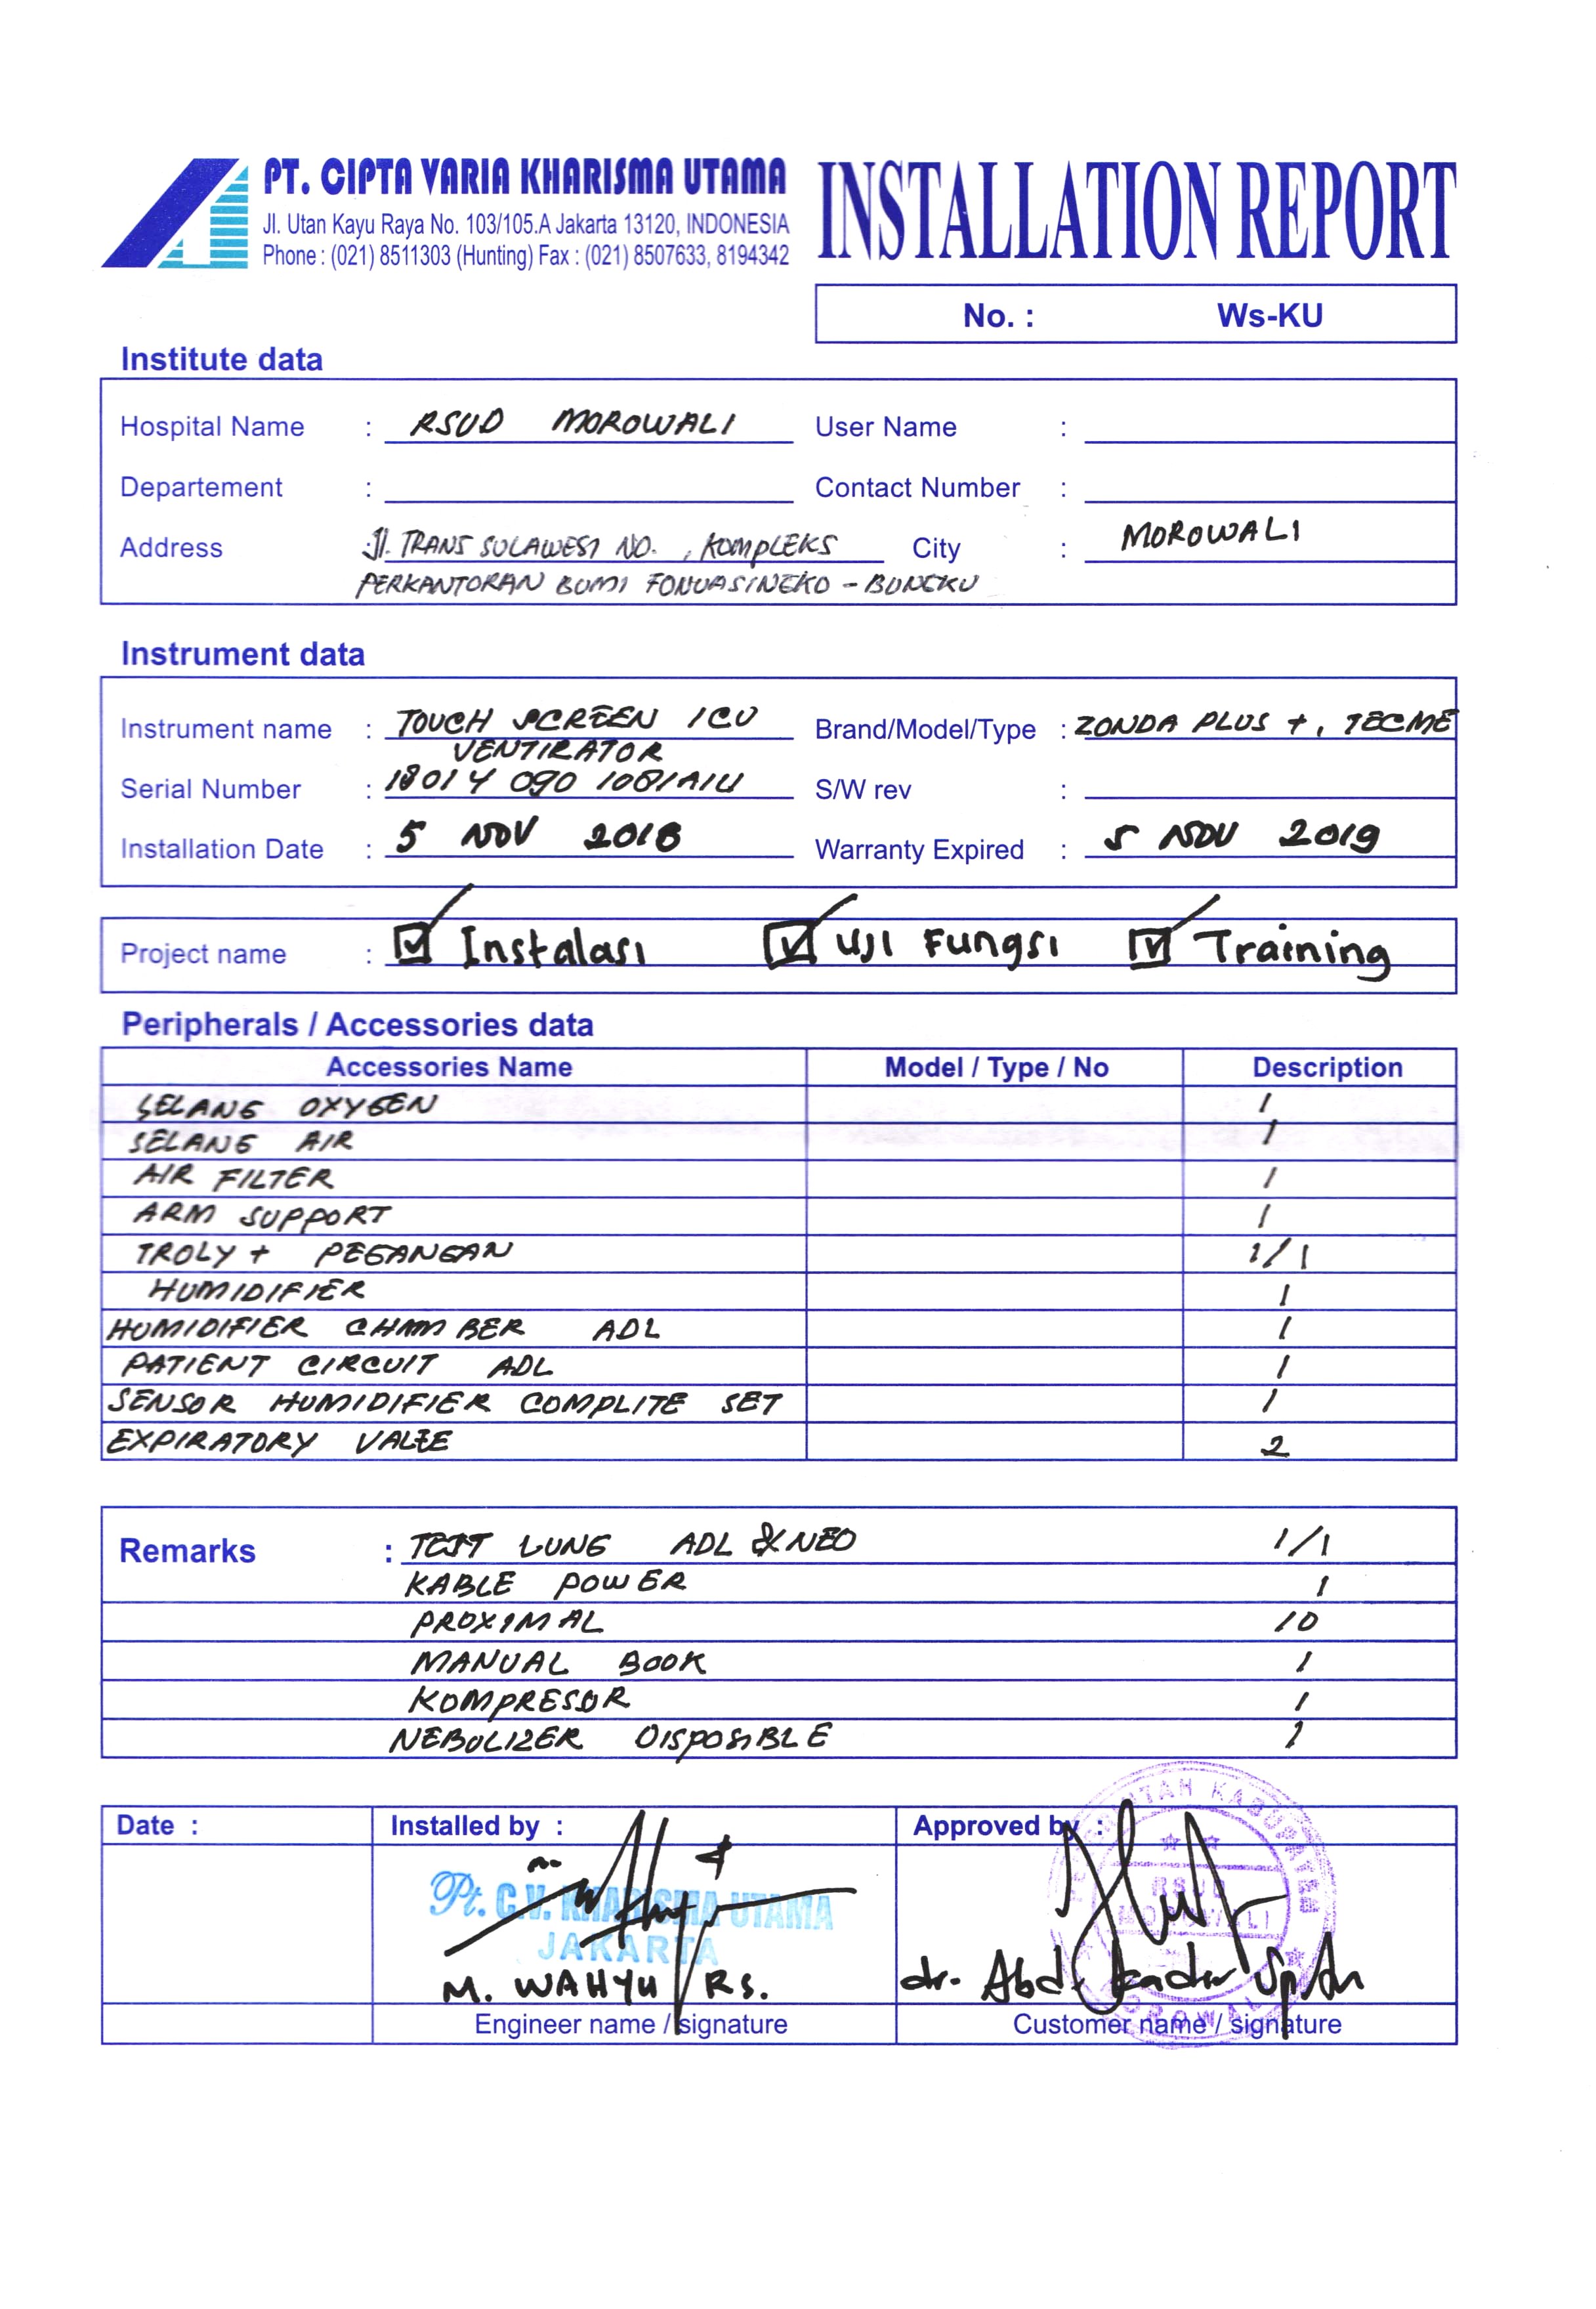 PT. CIPTA VARIA KHARISMA UTAMA
Jl. Utan Kayu Raya No. 103/105.A Jakarta 13120, INDONESIA
Phone : (021) 8511303 (Hunting) Fax : (021) 8507633, 8194342
INSTALLATION REPORT
No. : Ws-KU
Institute data
Hospital Name : RSUD MOROWALI User Name :
Departement : Contact Number :
Address : Jl. TRANS SULAWESI NO. , KOMPLEKS City : MOROWALI
PERKANTORAN BUMI FONUASINEKO - BUNGKU
Instrument data
Instrument name : TOUCH SCREEN ICU Brand/Model/Type : ZONDA PLUS +, TECME
VENTIRATOR
Serial Number : S/W rev :
Installation Date : 5 NOV 2018 Warranty Expired : 5 NOV 2019
Project name : Instalasi Uji Fungsi Training
Peripherals / Accessories data
Accessories Name Model / Type / No Description
SELANG OXYGEN 1
SELANG AIR 1
AIR FILTER 1
ARM SUPPORT 1
TROLY + PEGANGAN 1/1
HUMIDIFIER 1
HUMIDIFIER CHAMBER ADL 1
PATIENT CIRCUIT ADL 1
SENSOR HUMIDIFIER COMPLITE SET 1
EXPIRATORY 2
Remarks : TEST LUNG ADL & NEO 1/1
KABLE POWER 1
PROXIMAL 10
MANUAL BOOK 1
KOMPRESOR 1
NEBULIZER DISPOSIBLE 1
Date : Installed by : Approved by :
Pt. C.V. KHARISMA UTAMA
JAKARTA
RSUD
MOROWALI
M. WAHYU RS. dr. Abd. Kadir SpAn
Engineer name / signature Customer name / signature